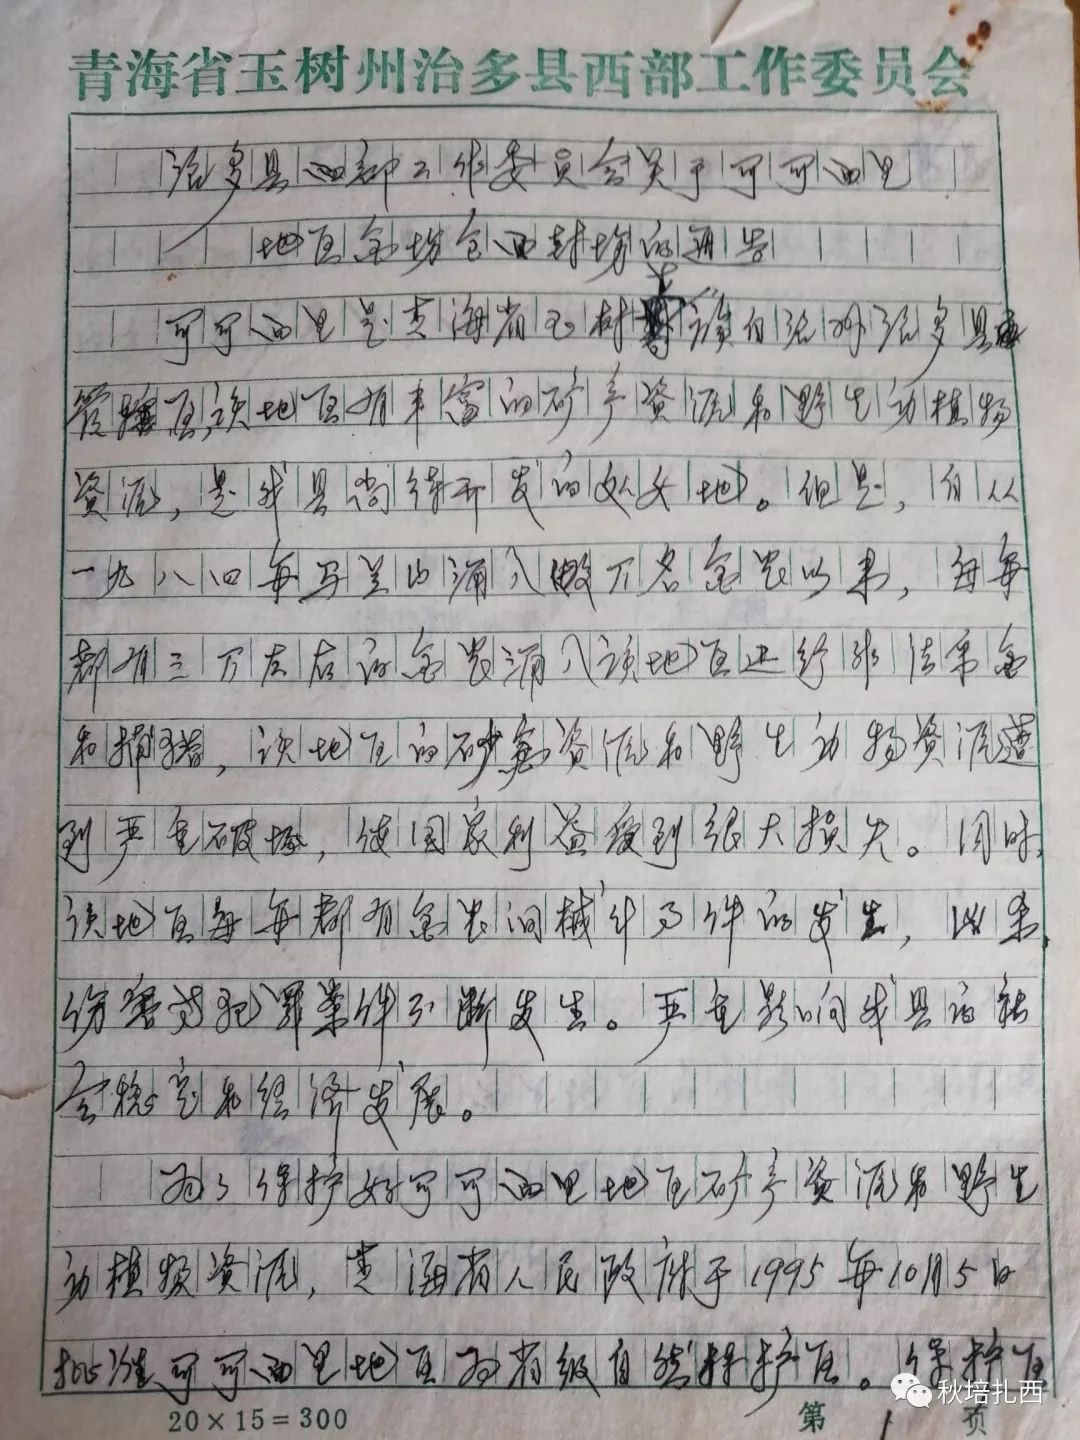 青海省玉树州治多县西部工作委员会
治多县西部工作委员会关于可可西里
地区金场全面封场的通告
可可西里是青海省玉树藏族自治州治多县
管辖区,该地区有丰富的矿产资源和野生动植物
资源,是我县尚待开发的处女地。但是,自从
一九八四年马兰山涌入数万名金农以来,每年
都有三万左右的金农涌入该地区进行非法采金
和捕猎,该地区的砂金资源和野生动物资源遭
到严重破坏,使国家利益受到很大损失。同时,
该地区每年都有金农间械斗事件的发生,
伤害等犯罪案件不断发生。严重影响我县的社
会稳定和经济发展。
为了保护好可可西里地区矿产资源和野生
动植物资源,青海省人民政府于1995年10月5日
批准可可西里地区为省级自然保护区。保护区
20×15=300
第 1 页
秋培扎西